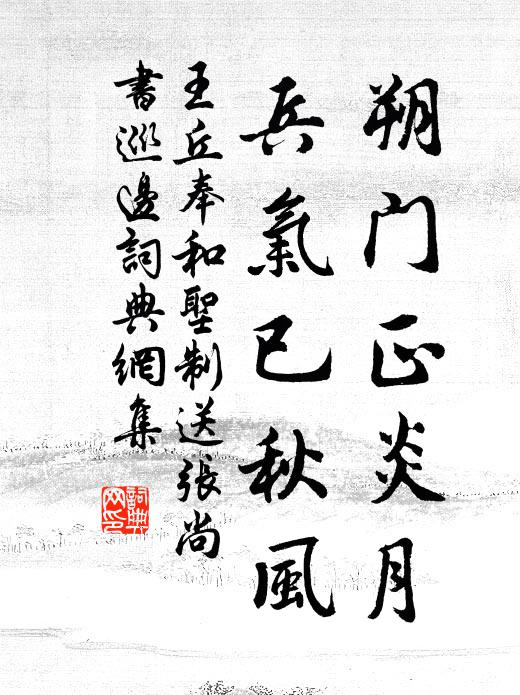 朔门正炎月
兵氣已秋風
王丘奉和聖制送張尚
書巡邊詞典網集
詞典
网印